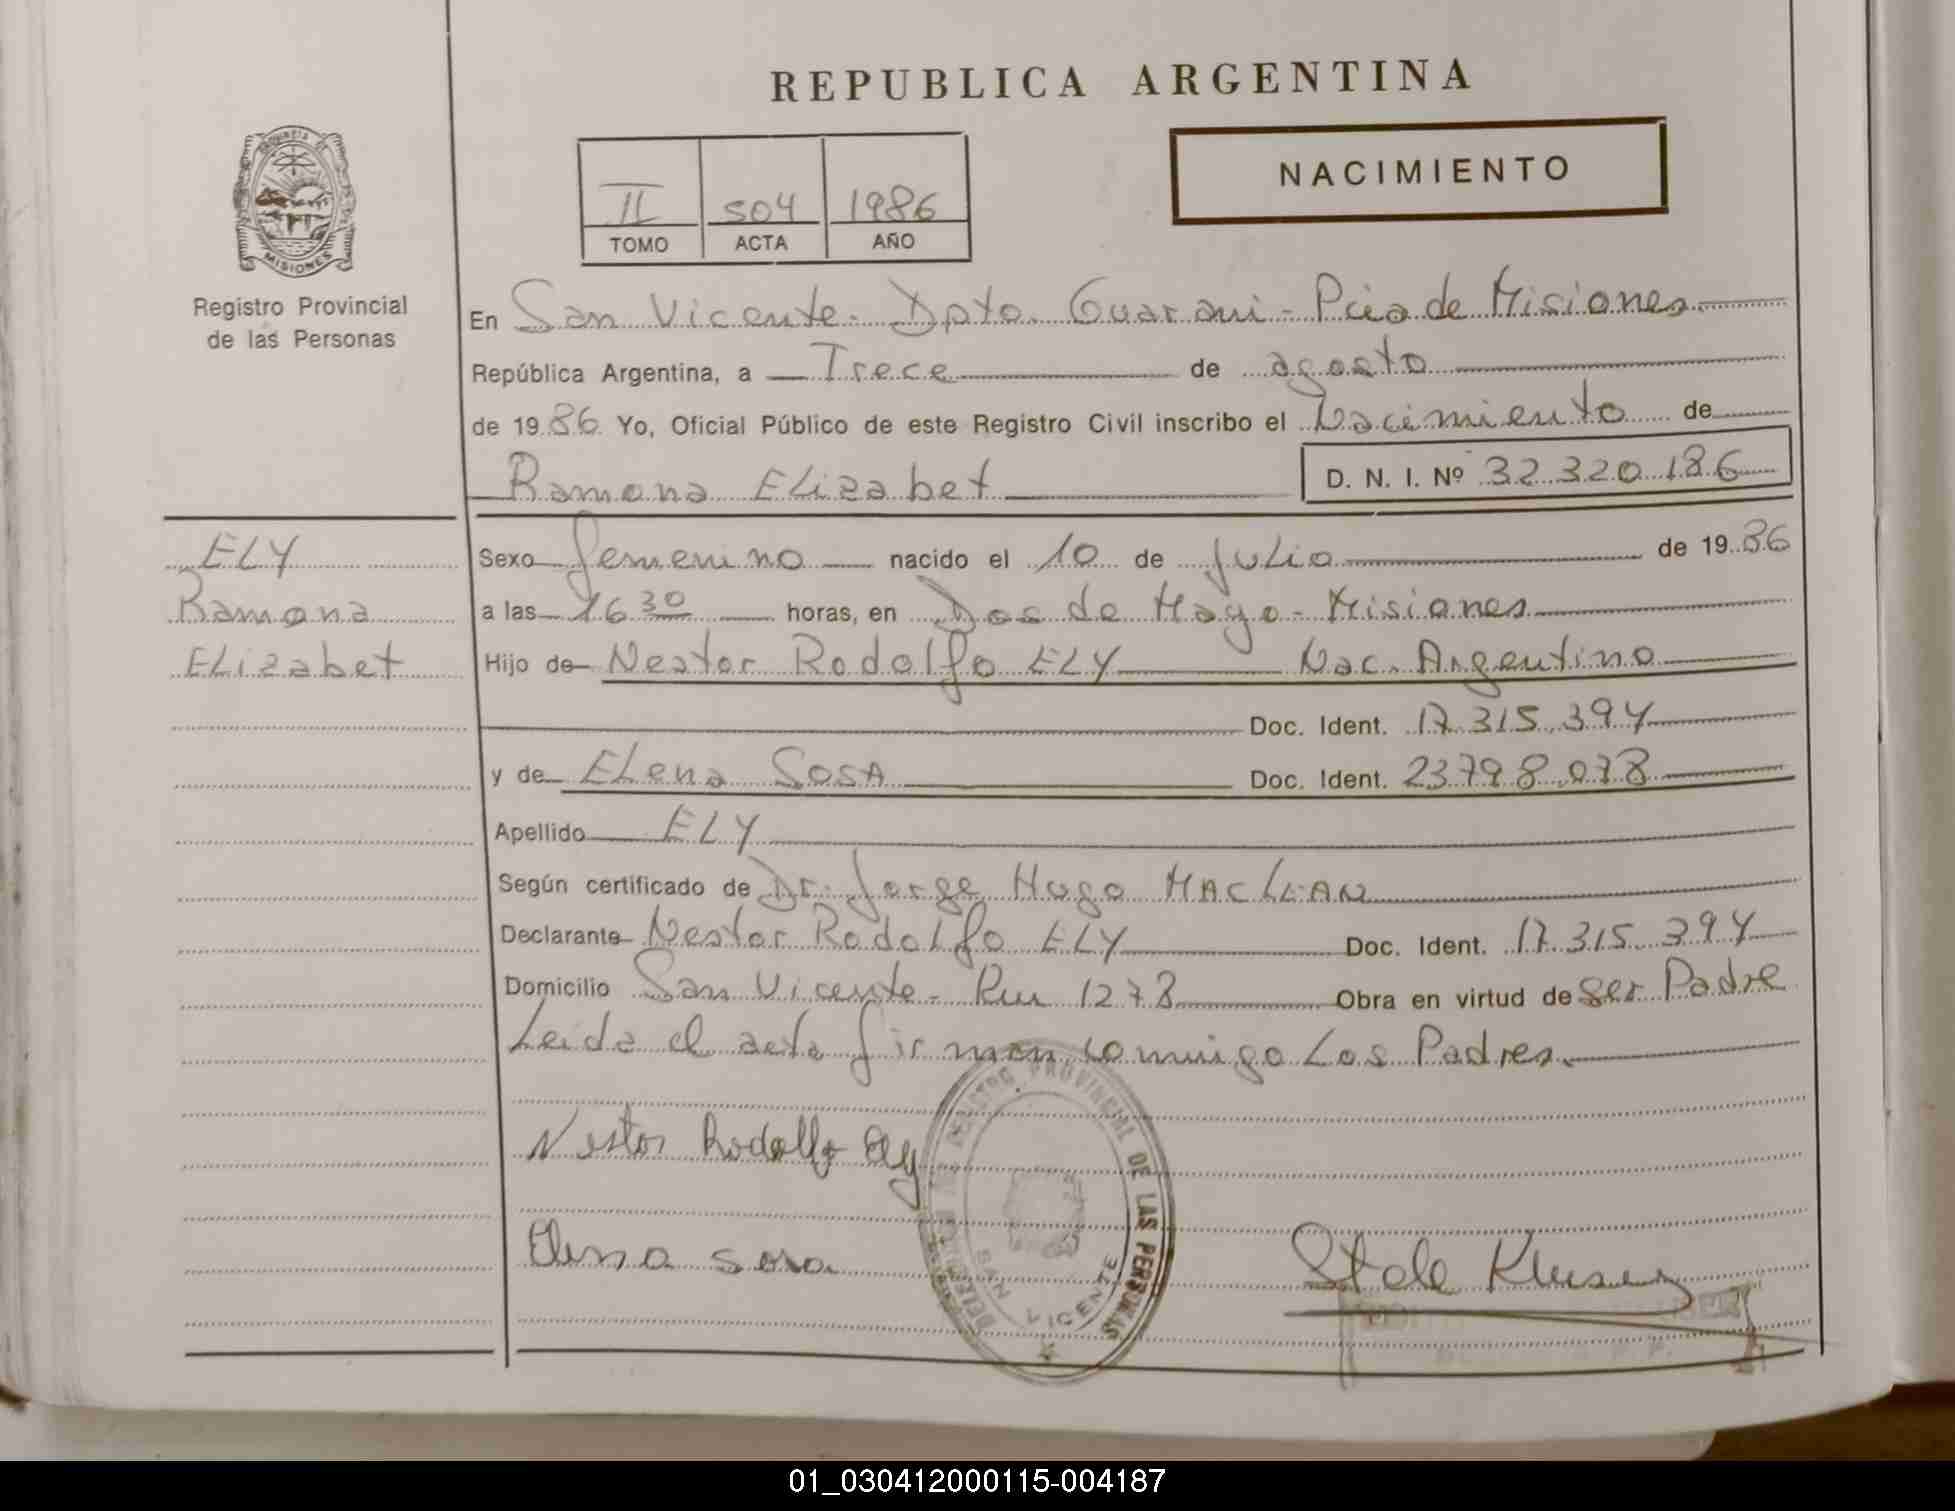 REPUBLICA ARGENTINA
PROVINCIA DE
MISIONES
Registro Provincial
de las Personas
II 504 1986
TOMO ACTA AÑO
NACIMIENTO
En San Vicente - Dpto. Guarani - Pcia de Misiones
República Argentina, a Trece de agosto
de 1986 Yo, Oficial Público de este Registro Civil inscribo el Nacimiento de
Ramona ELizabet D. N. I. Nº 32.320.186
ELY
Ramona
ELizabet
Sexo femenino nacido el 10 de Julio de 1986
a las 16 30 horas, en Dos de Mayo - Misiones
Hijo de Nestor Rodolfo ELY Nac. Argentino
Doc. Ident. 17.315.394
y de ELena SOSA Doc. Ident. 23.798.078
Apellido ELY
Según certificado de Dr. Jorge Hugo MACLEAN
Declarante Nestor Rodolfo ELY Doc. Ident. 17.315.394
Domicilio San Vicente - Km 1278 Obra en virtud de ser Padre
Leida el acta firman conmigo Los Padres.
Nestor Rodolfo Ely
Elena sosa
REGISTRO PROVINCIAL DE LAS PERSONAS
SAN VICENTE
01_030412000115-004187